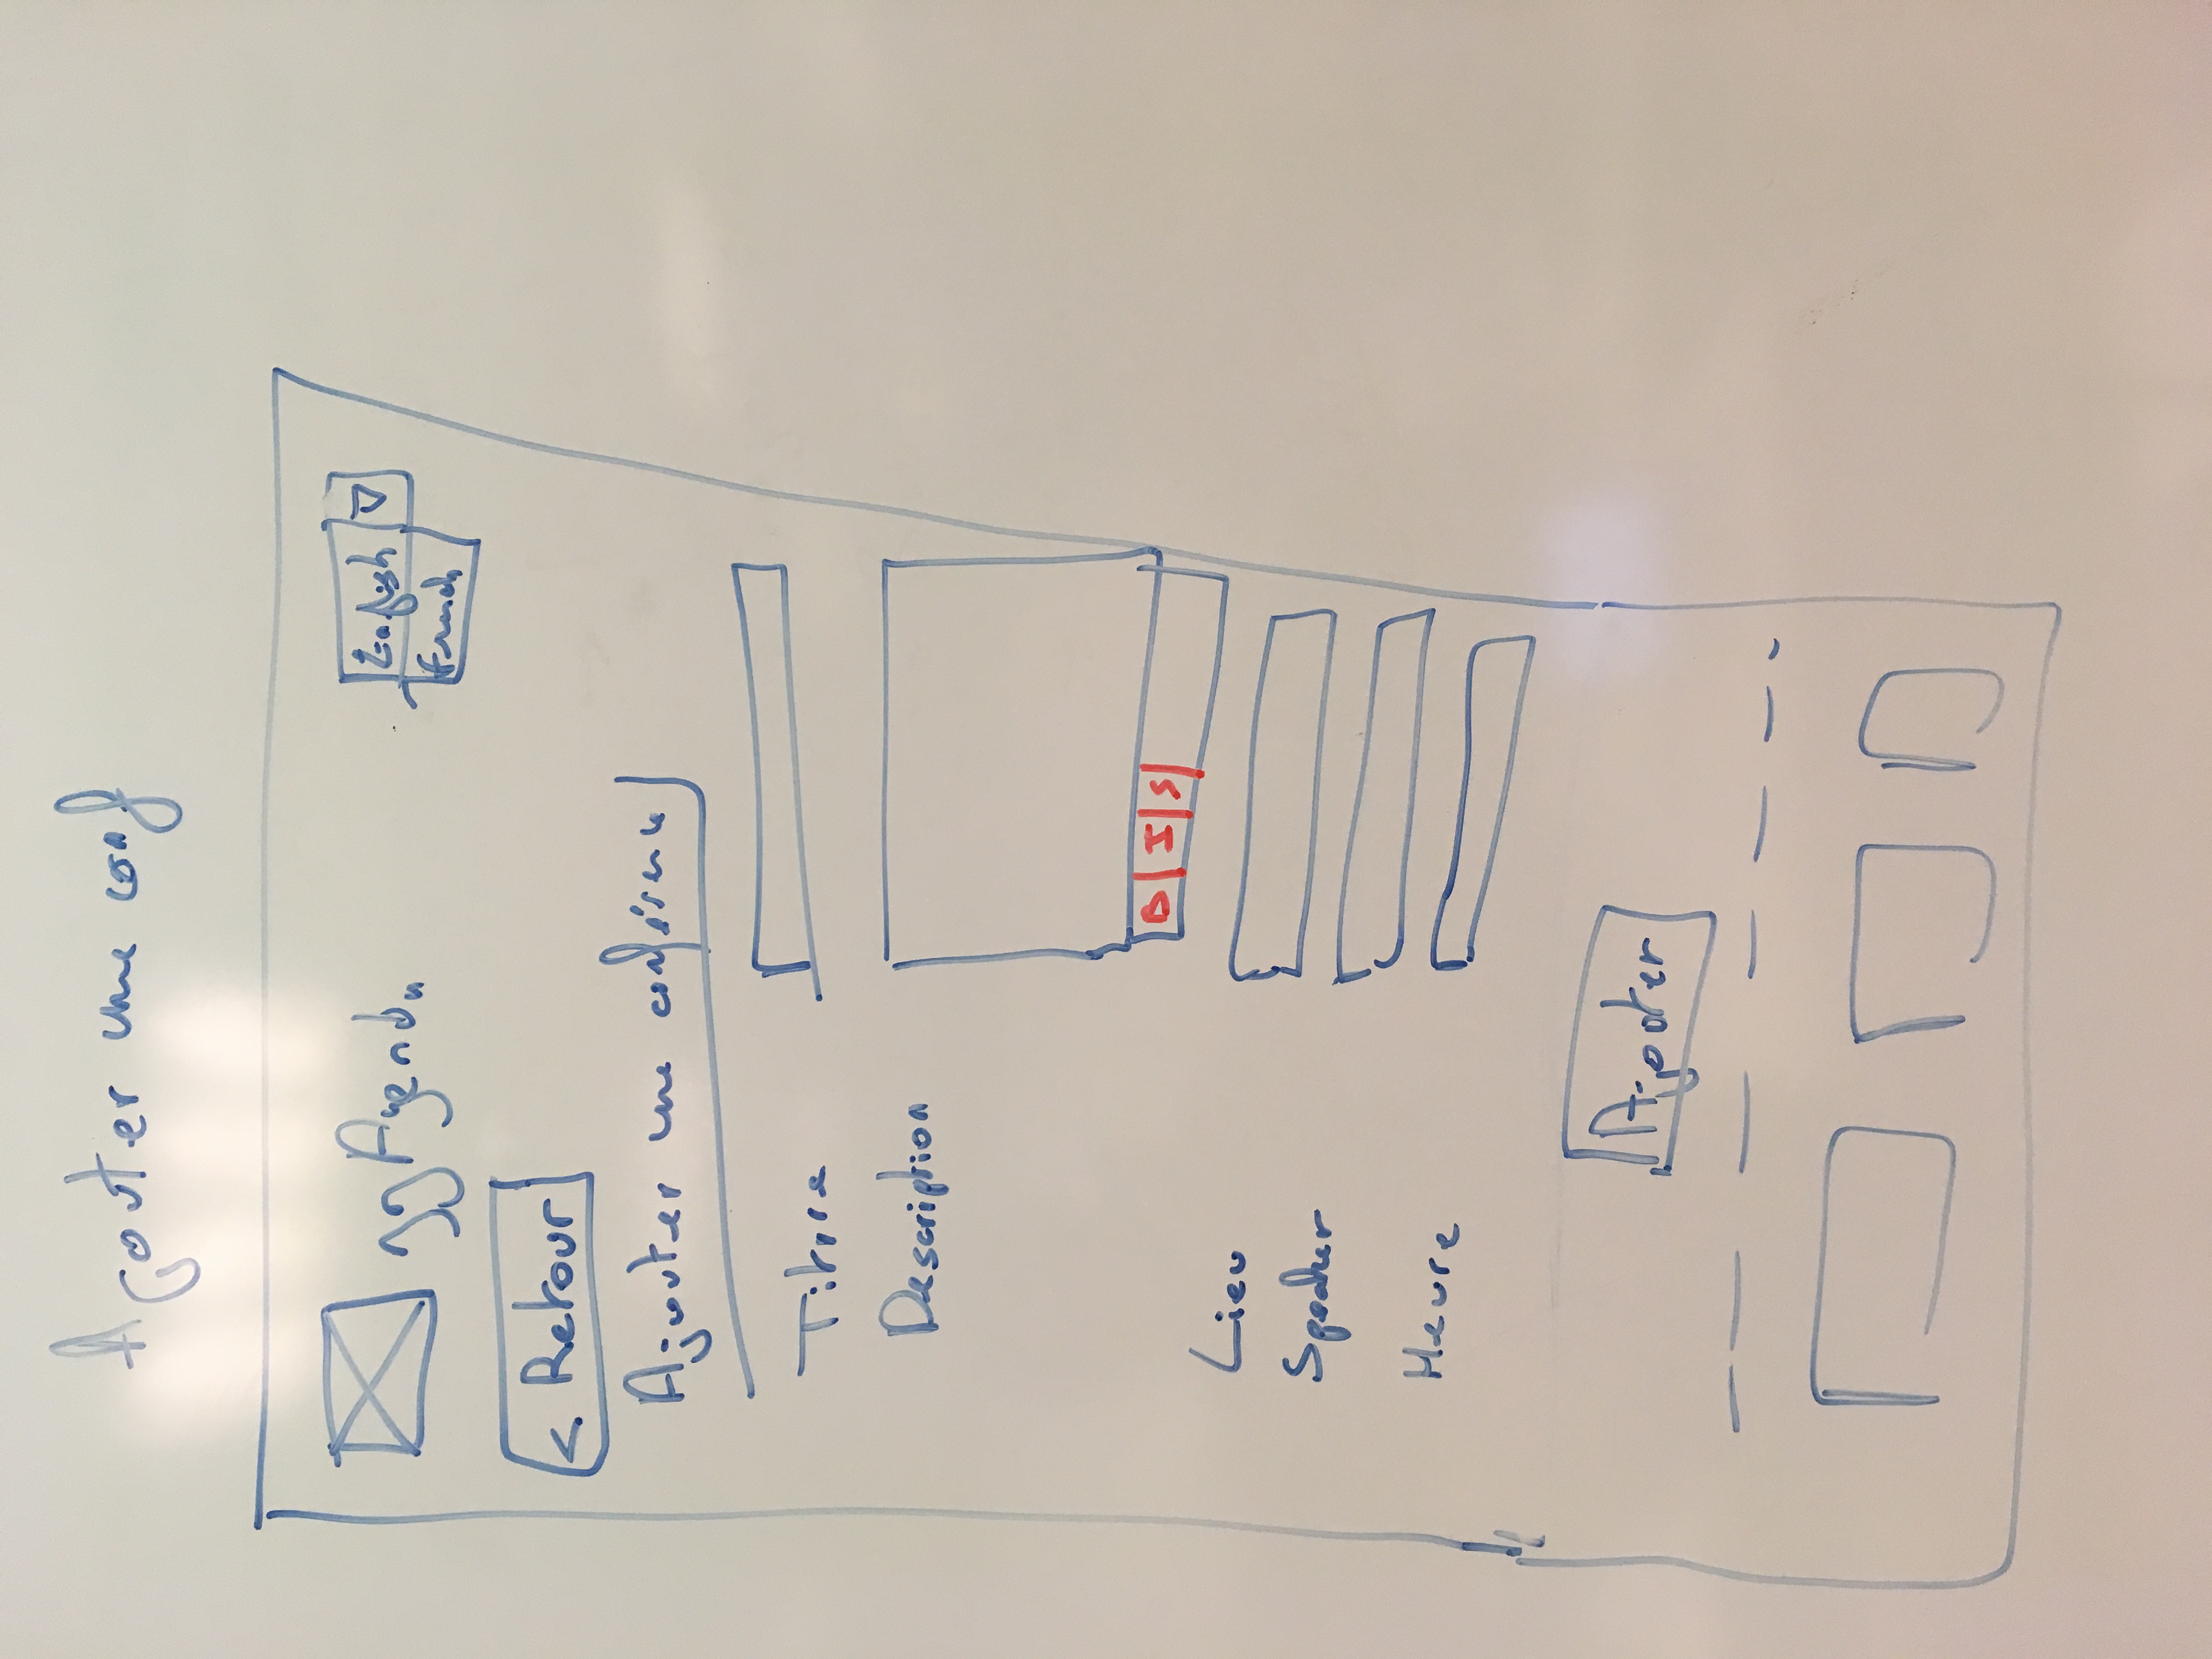 Ajouter une conf
ggAgenda
English
French
< Retour
Ajouter une conférence
Titre
Description
B I S
Lieu
Speaker
Heure
Ajouter